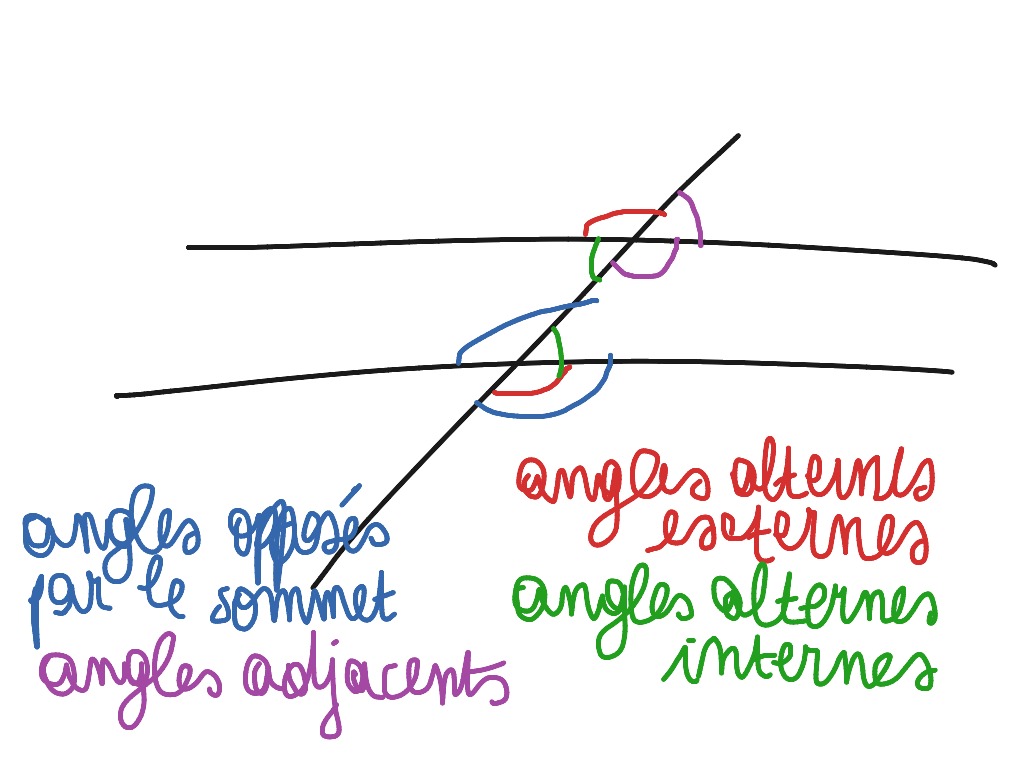 angles opposés
par le sommet
angles adjacents
angles alternes
externes
angles alternes
internes